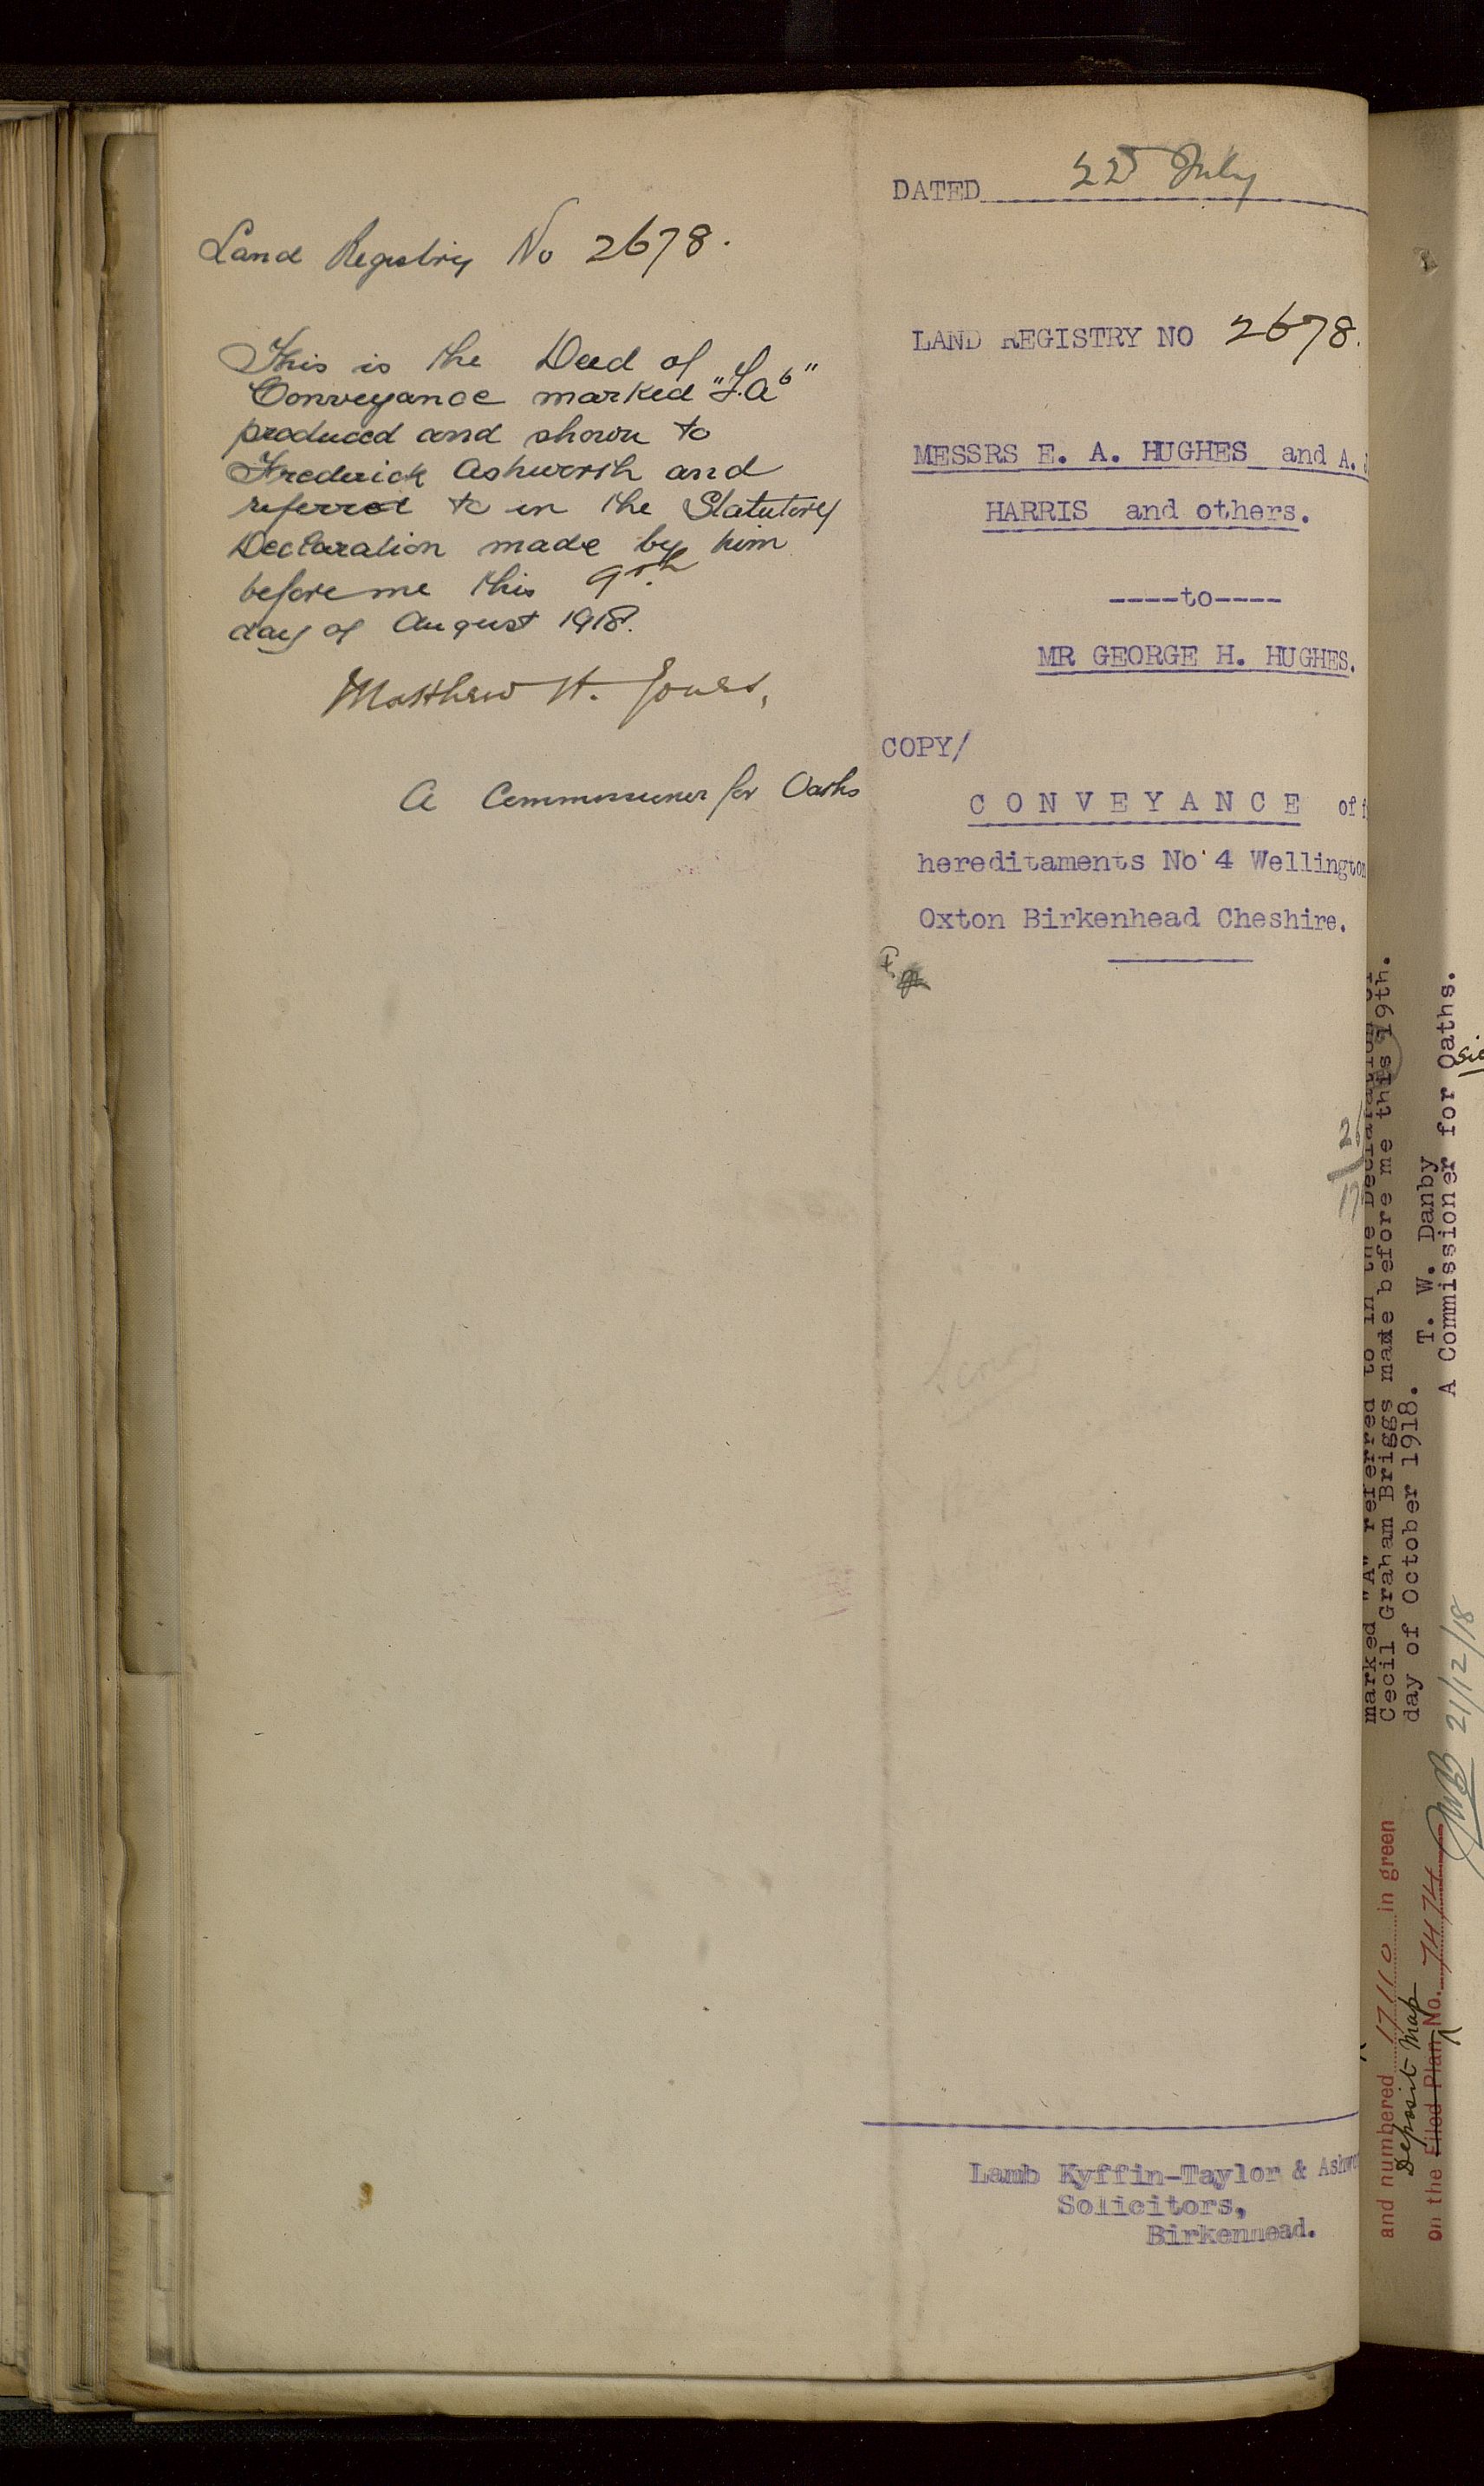 Land Registry No 2678.
This is the Deed of
Conveyance marked "F.A⁶"
produced and shown to
Frederick Ashworth and
referred to in the Statutory
Declaration made by him
before me this 9th
day of August 1918.
Matthew H. Jones,
A Commissioner for Oaths
DATED 22 July
LAND REGISTRY NO 2678.
MESSRS E. A. HUGHES and A.
HARRIS and others.
----to----
MR GEORGE H. HUGHES.
COPY/
C O N V E Y A N C E of
hereditaments No 4 Wellington
Oxton Birkenhead Cheshire.
Lamb Kyffin-Taylor & Ashw
Solicitors,
Birkenhead.
marked "A" referred to in the Declaration of
Cecil Graham Briggs made before me this 19th.
day of October 1918.
T. W. Danby
A Commissioner for Oaths.
21/12/18
and numbered 17110 in green
Deposit Map
on the Filed Plan No. 7474